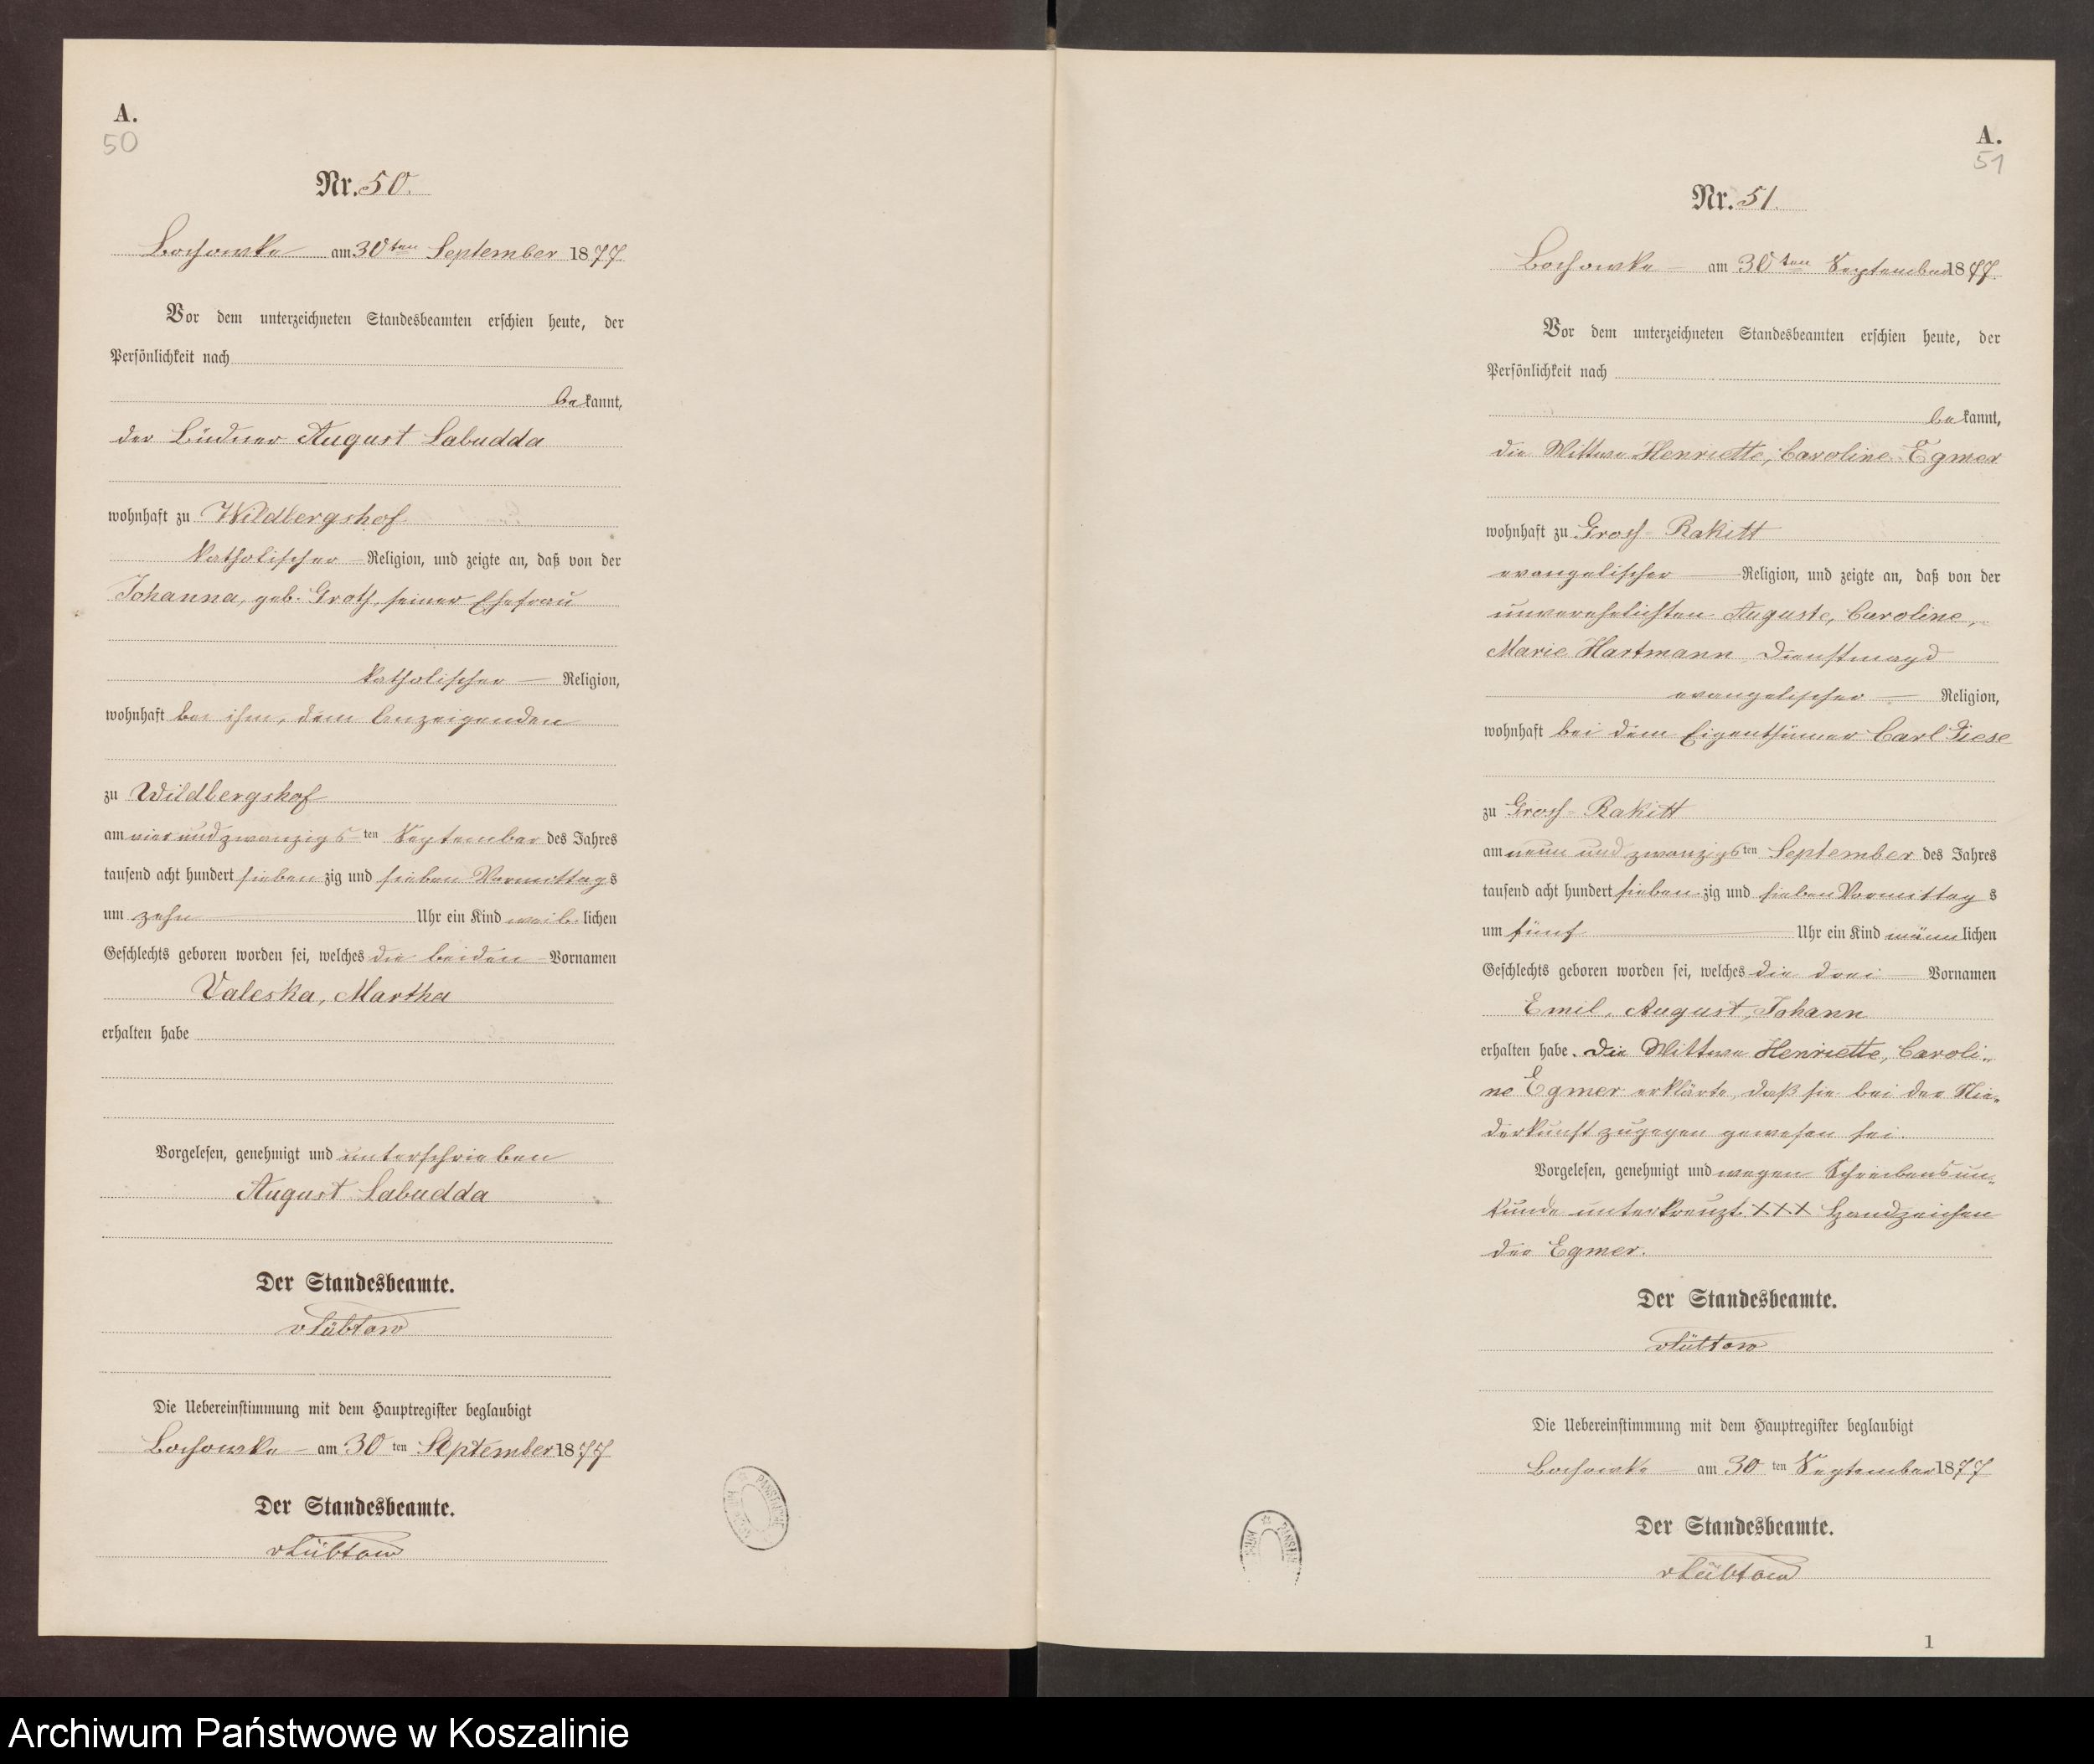 A.
50
Nr. 50.
Bochowke am 30ten September 1877
Vor dem unterzeichneten Standesbeamten erschien heute, der
Persönlichkeit nach
bekannt,
der Büdner August Labudda
wohnhaft zu Wildbergshof
katholischer Religion, und zeigte an, daß von der
Johanna, geb. Groth, seiner Ehefrau
katholischer Religion,
wohnhaft bei ihm, dem Anzeigenden
zu Wildbergshof
am vier und zwanzigsten September des Jahres
tausend acht hundert siebenzig und sieben Vormittags
um zehn Uhr ein Kind weiblichen
Geschlechts geboren worden sei, welches die beiden Vornamen
Valeska, Martha
erhalten habe
Vorgelesen, genehmigt und unterschrieben
August Labudda
Der Standesbeamte.
vLübtow
Die Uebereinstimmung mit dem Hauptregister beglaubigt
Bochowke am 30ten September 1877
Der Standesbeamte.
vLübtow
A.
51
Nr. 51.
Bochowke am 30ten September 1877.
Vor dem unterzeichneten Standesbeamten erschien heute, der
Persönlichkeit nach
bekannt,
die Wittwe Henriette, Caroline Egmer
wohnhaft zu Gross-Rakitt
evangelischer Religion, und zeigte an, daß von der
unverehelichten Auguste, Caroline,
Marie Hartmann, Dienstmagd
evangelischer Religion,
wohnhaft bei dem Eigenthümer Carl Giese
zu Gross-Rakitt
am neun und zwanzigsten September des Jahres
tausend acht hundert siebenzig und sieben Vormittags
um fünf Uhr ein Kind männlichen
Geschlechts geboren worden sei, welches die drei Vornamen
Emil, August, Johann
erhalten habe. Die Wittwe Henriette, Caroli-
ne Egmer erklärte, daß sie bei der Nie-
derkunft zugegen gewesen sei.
Vorgelesen, genehmigt und wegen Schreibensun-
kunde unterkreuzt XXX Handzeichen
der Egmer.
Der Standesbeamte.
vLübtow
Die Uebereinstimmung mit dem Hauptregister beglaubigt
Bochowke am 30ten September 1877
Der Standesbeamte.
vLübtow
1
Archiwum Państwowe w Koszalinie